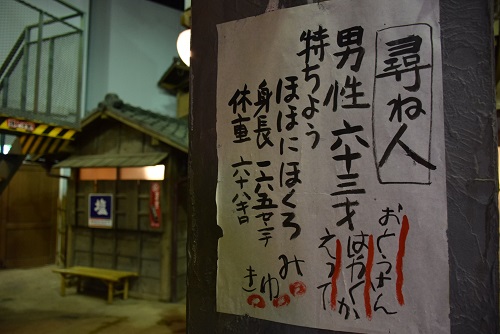 尋ね人
男性 六十三才
特ちょう
ほほにほくろ
身長 一六五センチ
体重 六十八キロ
おとうさん
はやくか
えって
みゆき
塩